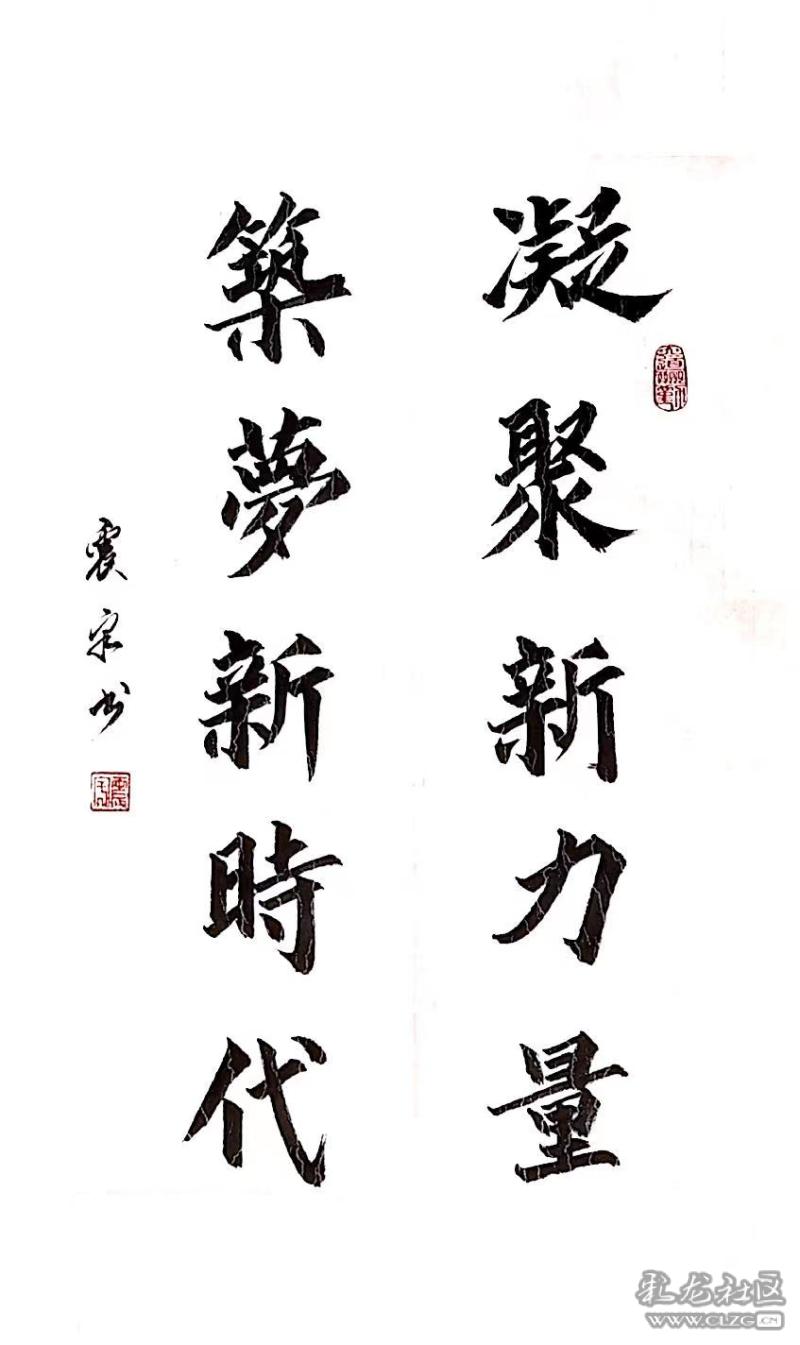 凝聚新力量
築夢新時代
震宗书
化龙社区
WWW.CLZG.CN